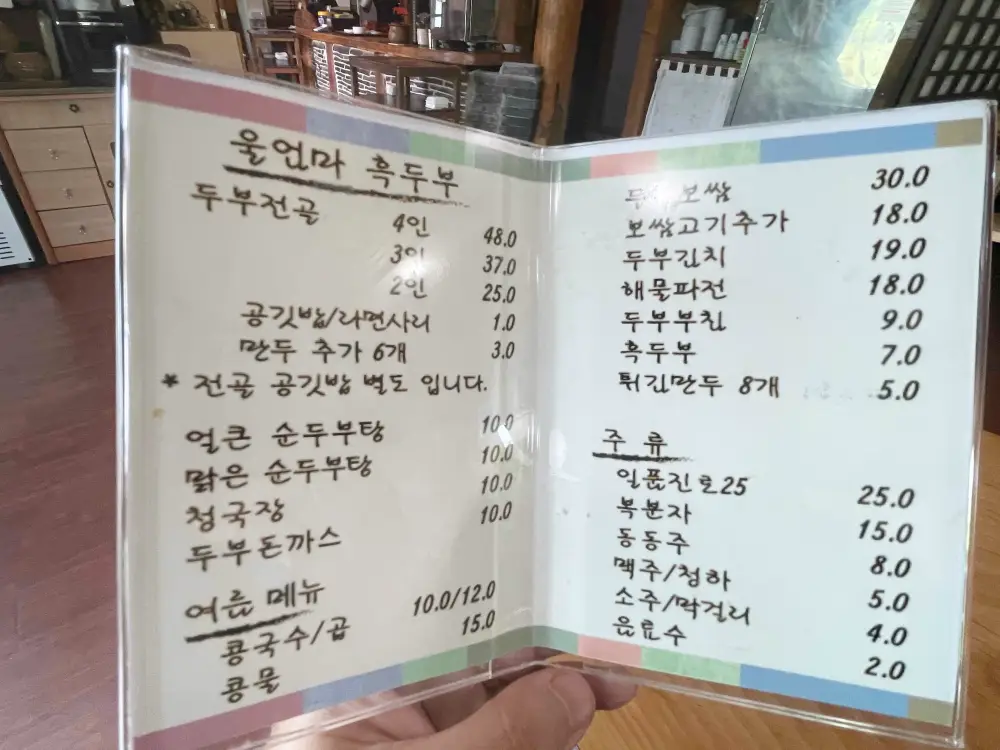 울엄마 흑두부
두부전골
4인 48.0
3인 37.0
2인 25.0
공깃밥/라면사리 1.0
만두 추가 6개 3.0
* 전골 공깃밥 별도 입니다.
얼큰 순두부탕 10.0
맑은 순두부탕 10.0
청국장 10.0
두부돈까스 10.0
여름 메뉴
콩국수/곱 10.0/12.0
콩물 15.0
보쌈 30.0
보쌈고기추가 18.0
두부김치 19.0
해물파전 18.0
두부부침 9.0
흑두부 7.0
튀김만두 8개 5.0
주 류
일품진로25 25.0
복분자 15.0
동동주 8.0
맥주/청하 5.0
소주/막걸리 4.0
음료수 2.0